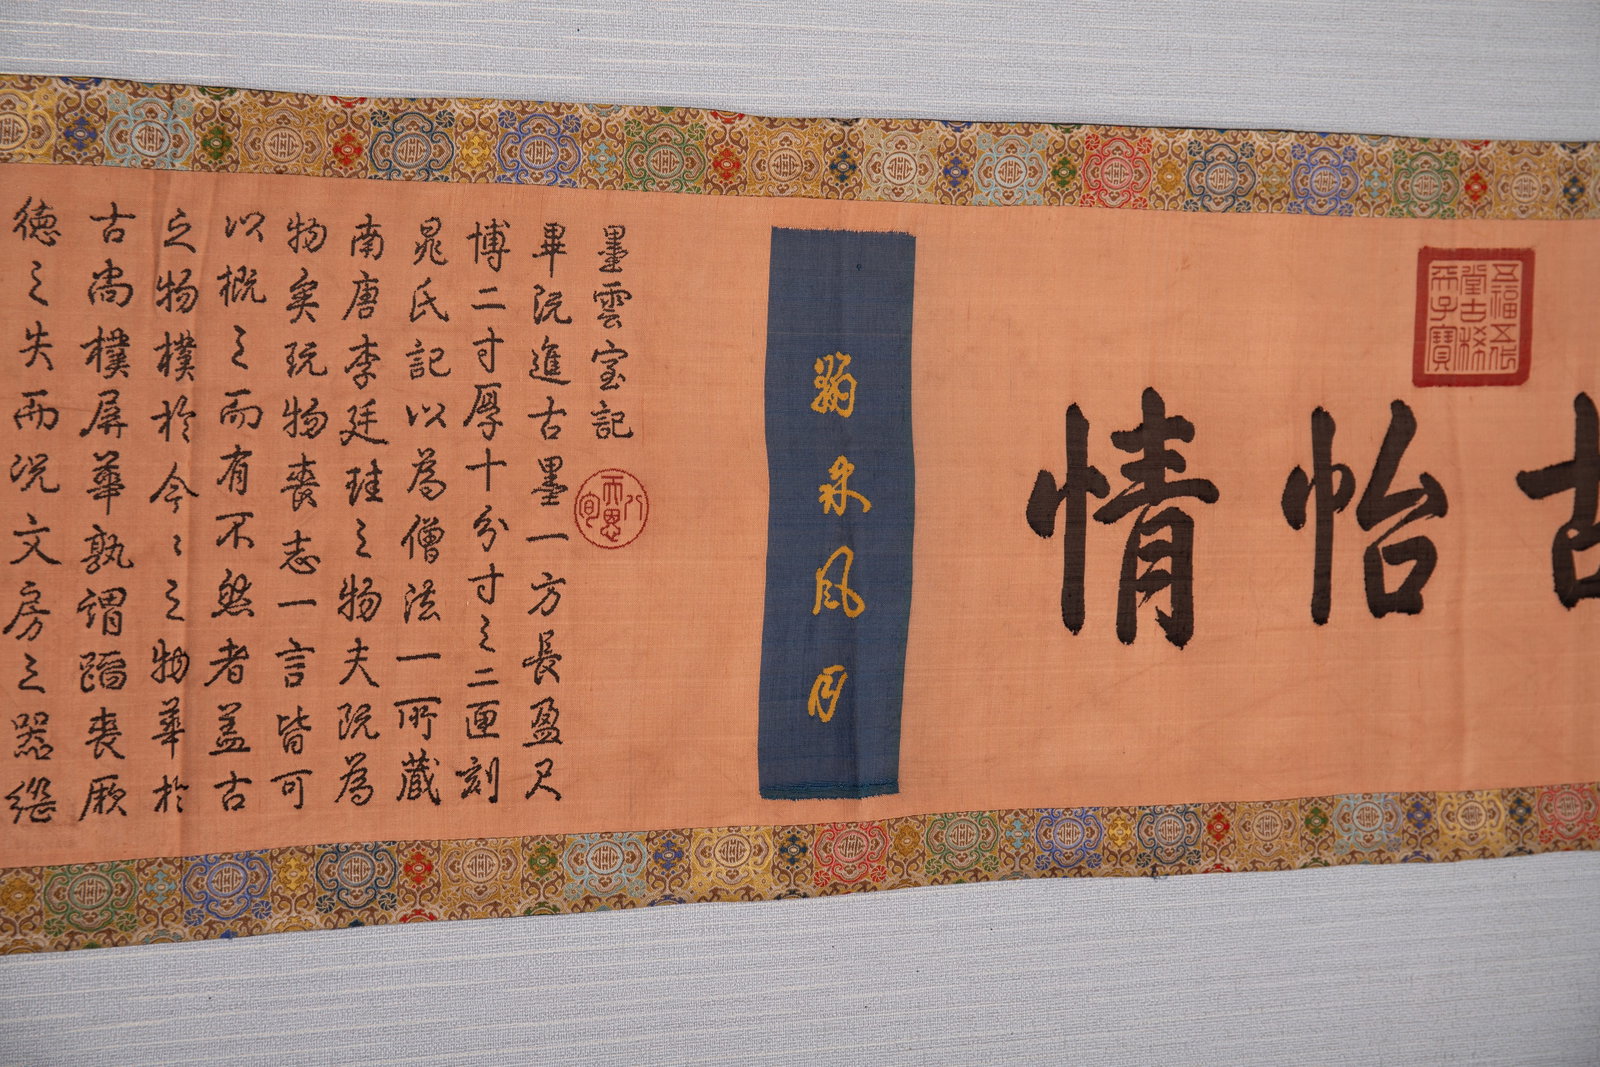 五福五代
堂古稀
天子寶
古怡情
风月
墨雲室記
天恩八旬
畢沅進古墨一方長盈尺
博二寸厚十分寸之二面刻
晁氏記以為僧法一所藏
南唐李廷珪之物夫既為
物矣玩物喪志一言皆可
以概之而有不然者盖古
之物樸於今〻之物華於
古尚樸屏華孰謂蹈喪厥
徳之失而况文房之器